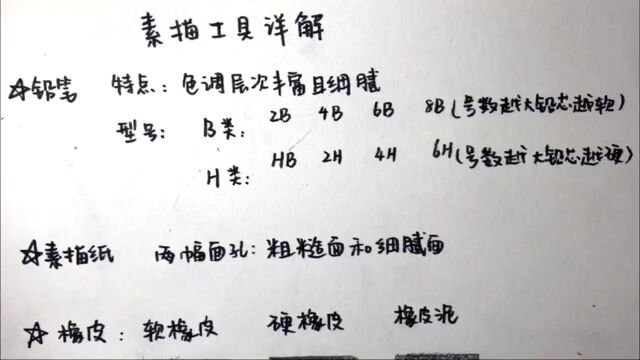 素描工具详解
☆铅笔 特点：色调层次丰富且细腻
型号： B类： 2B 4B 6B 8B（号数越大铅芯越软）
H类： HB 2H 4H 6H（号数越大铅芯越硬）
☆素描纸 两幅面孔：粗糙面和细腻面
☆橡皮： 软橡皮 硬橡皮 橡皮泥